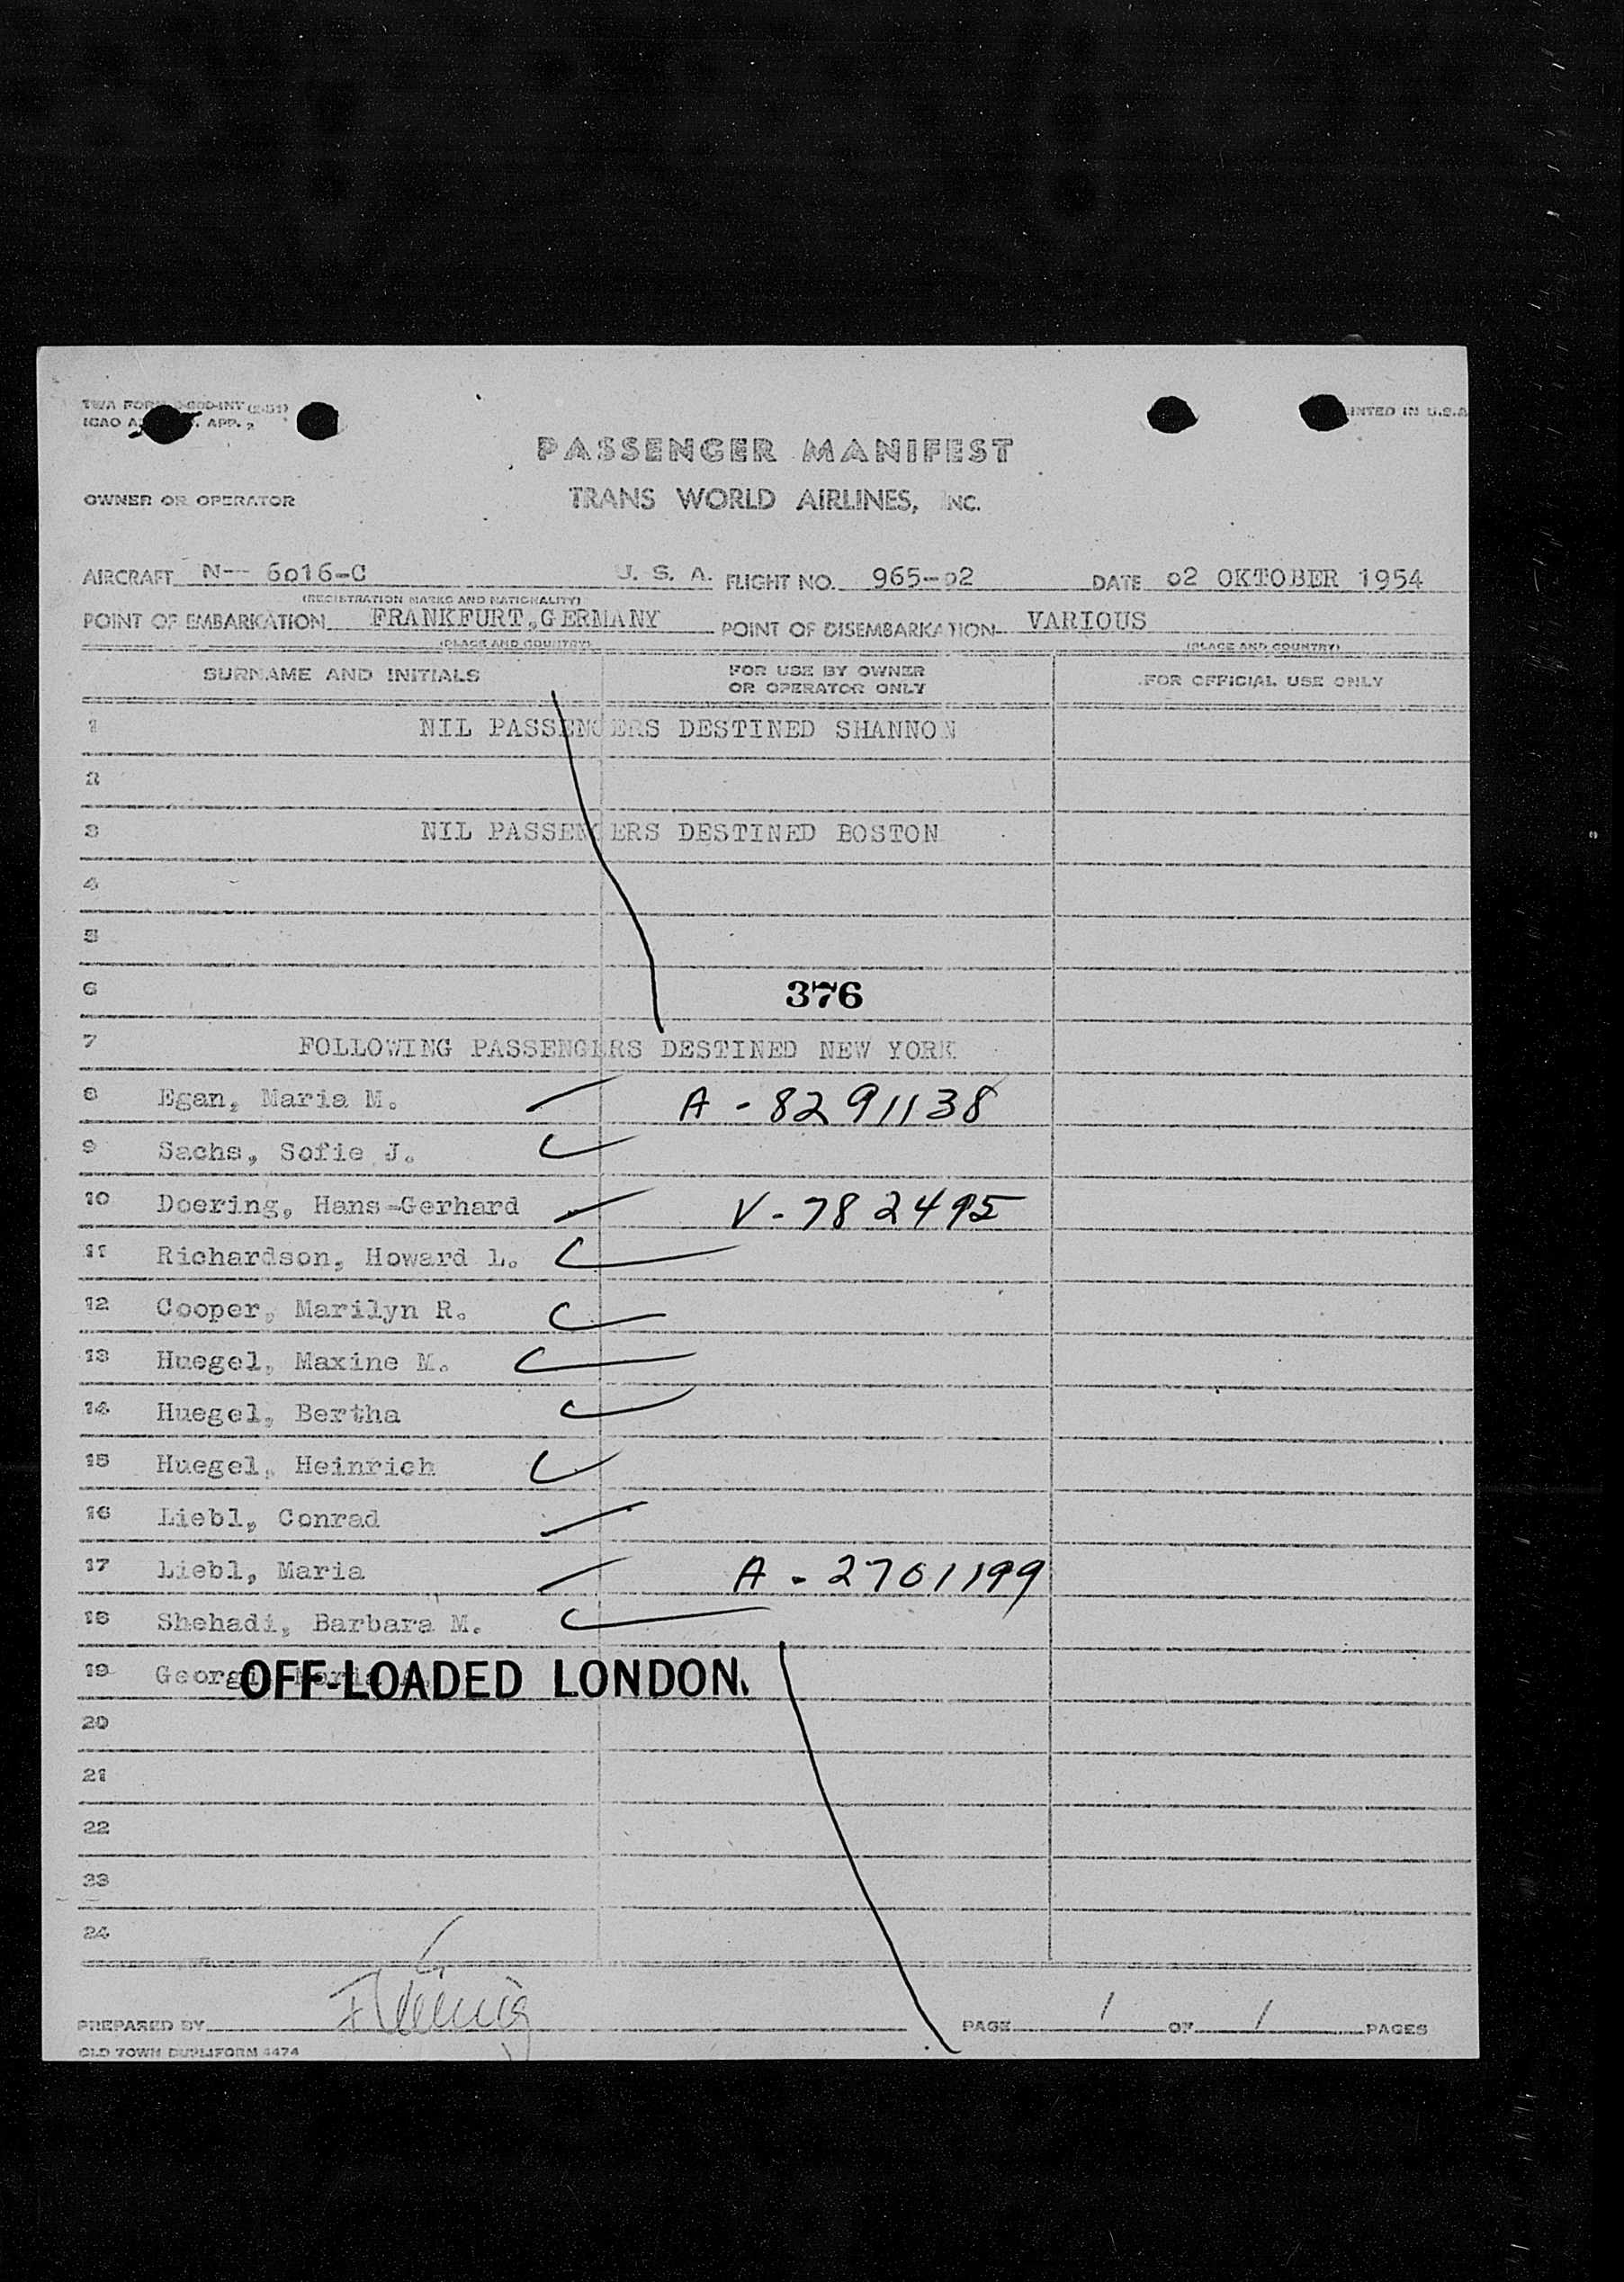 TWA FORM
ICAO APP.
PRINTED IN U.S.A
PASSENGER MANIFEST
OWNER OR OPERATOR TRANS WORLD AIRLINES, INC.
AIRCRAFT N-- 6o16-C U. S. A. FLIGHT NO. 965-o2 DATE o2 OKTOBER 1954
(REGISTRATION MARKS AND NATIONALITY)
POINT OF EMBARKATION FRANKFURT,GERMANY POINT OF DISEMBARKATION VARIOUS
(PLACE AND COUNTRY) (PLACE AND COUNTRY)
SURNAME AND INITIALS FOR USE BY OWNER OR OPERATOR ONLY FOR OFFICIAL USE ONLY
1 NIL PASSENGERS DESTINED SHANNON
2
3 NIL PASSENGERS DESTINED BOSTON
4
5
6 376
7 FOLLOWING PASSENGERS DESTINED NEW YORK
8 Egan, Maria M. A - 8291138
9 Sachs, Sofie J.
10 Doering, Hans-Gerhard V - 782495
11 Richardson, Howard L.
12 Cooper, Marilyn R.
13 Huegel, Maxine M.
14 Huegel, Bertha
15 Huegel, Heinrich
16 Liebl, Conrad
17 Liebl, Maria A - 2701199
18 Shehadi, Barbara M.
19 OFF-LOADED LONDON.
20
21
22
23
24
PREPARED BY PAGE 1 OF 1 PAGES
OLD TOWN DUPLIFORM 4474